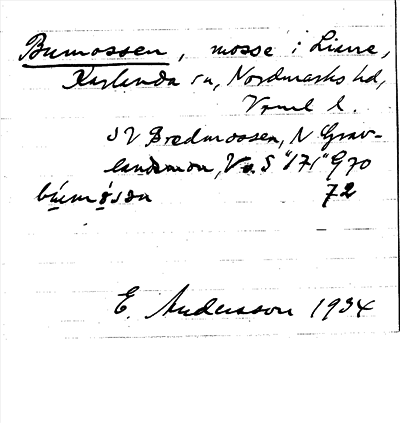 Bumossen, mosse i Liane,
Karlanda sn, Nordmarks hd,
Vrml l.
SV Bredmossen, N Grav-
landsmon, V. S "171" G70
72
E. Andersson 1934